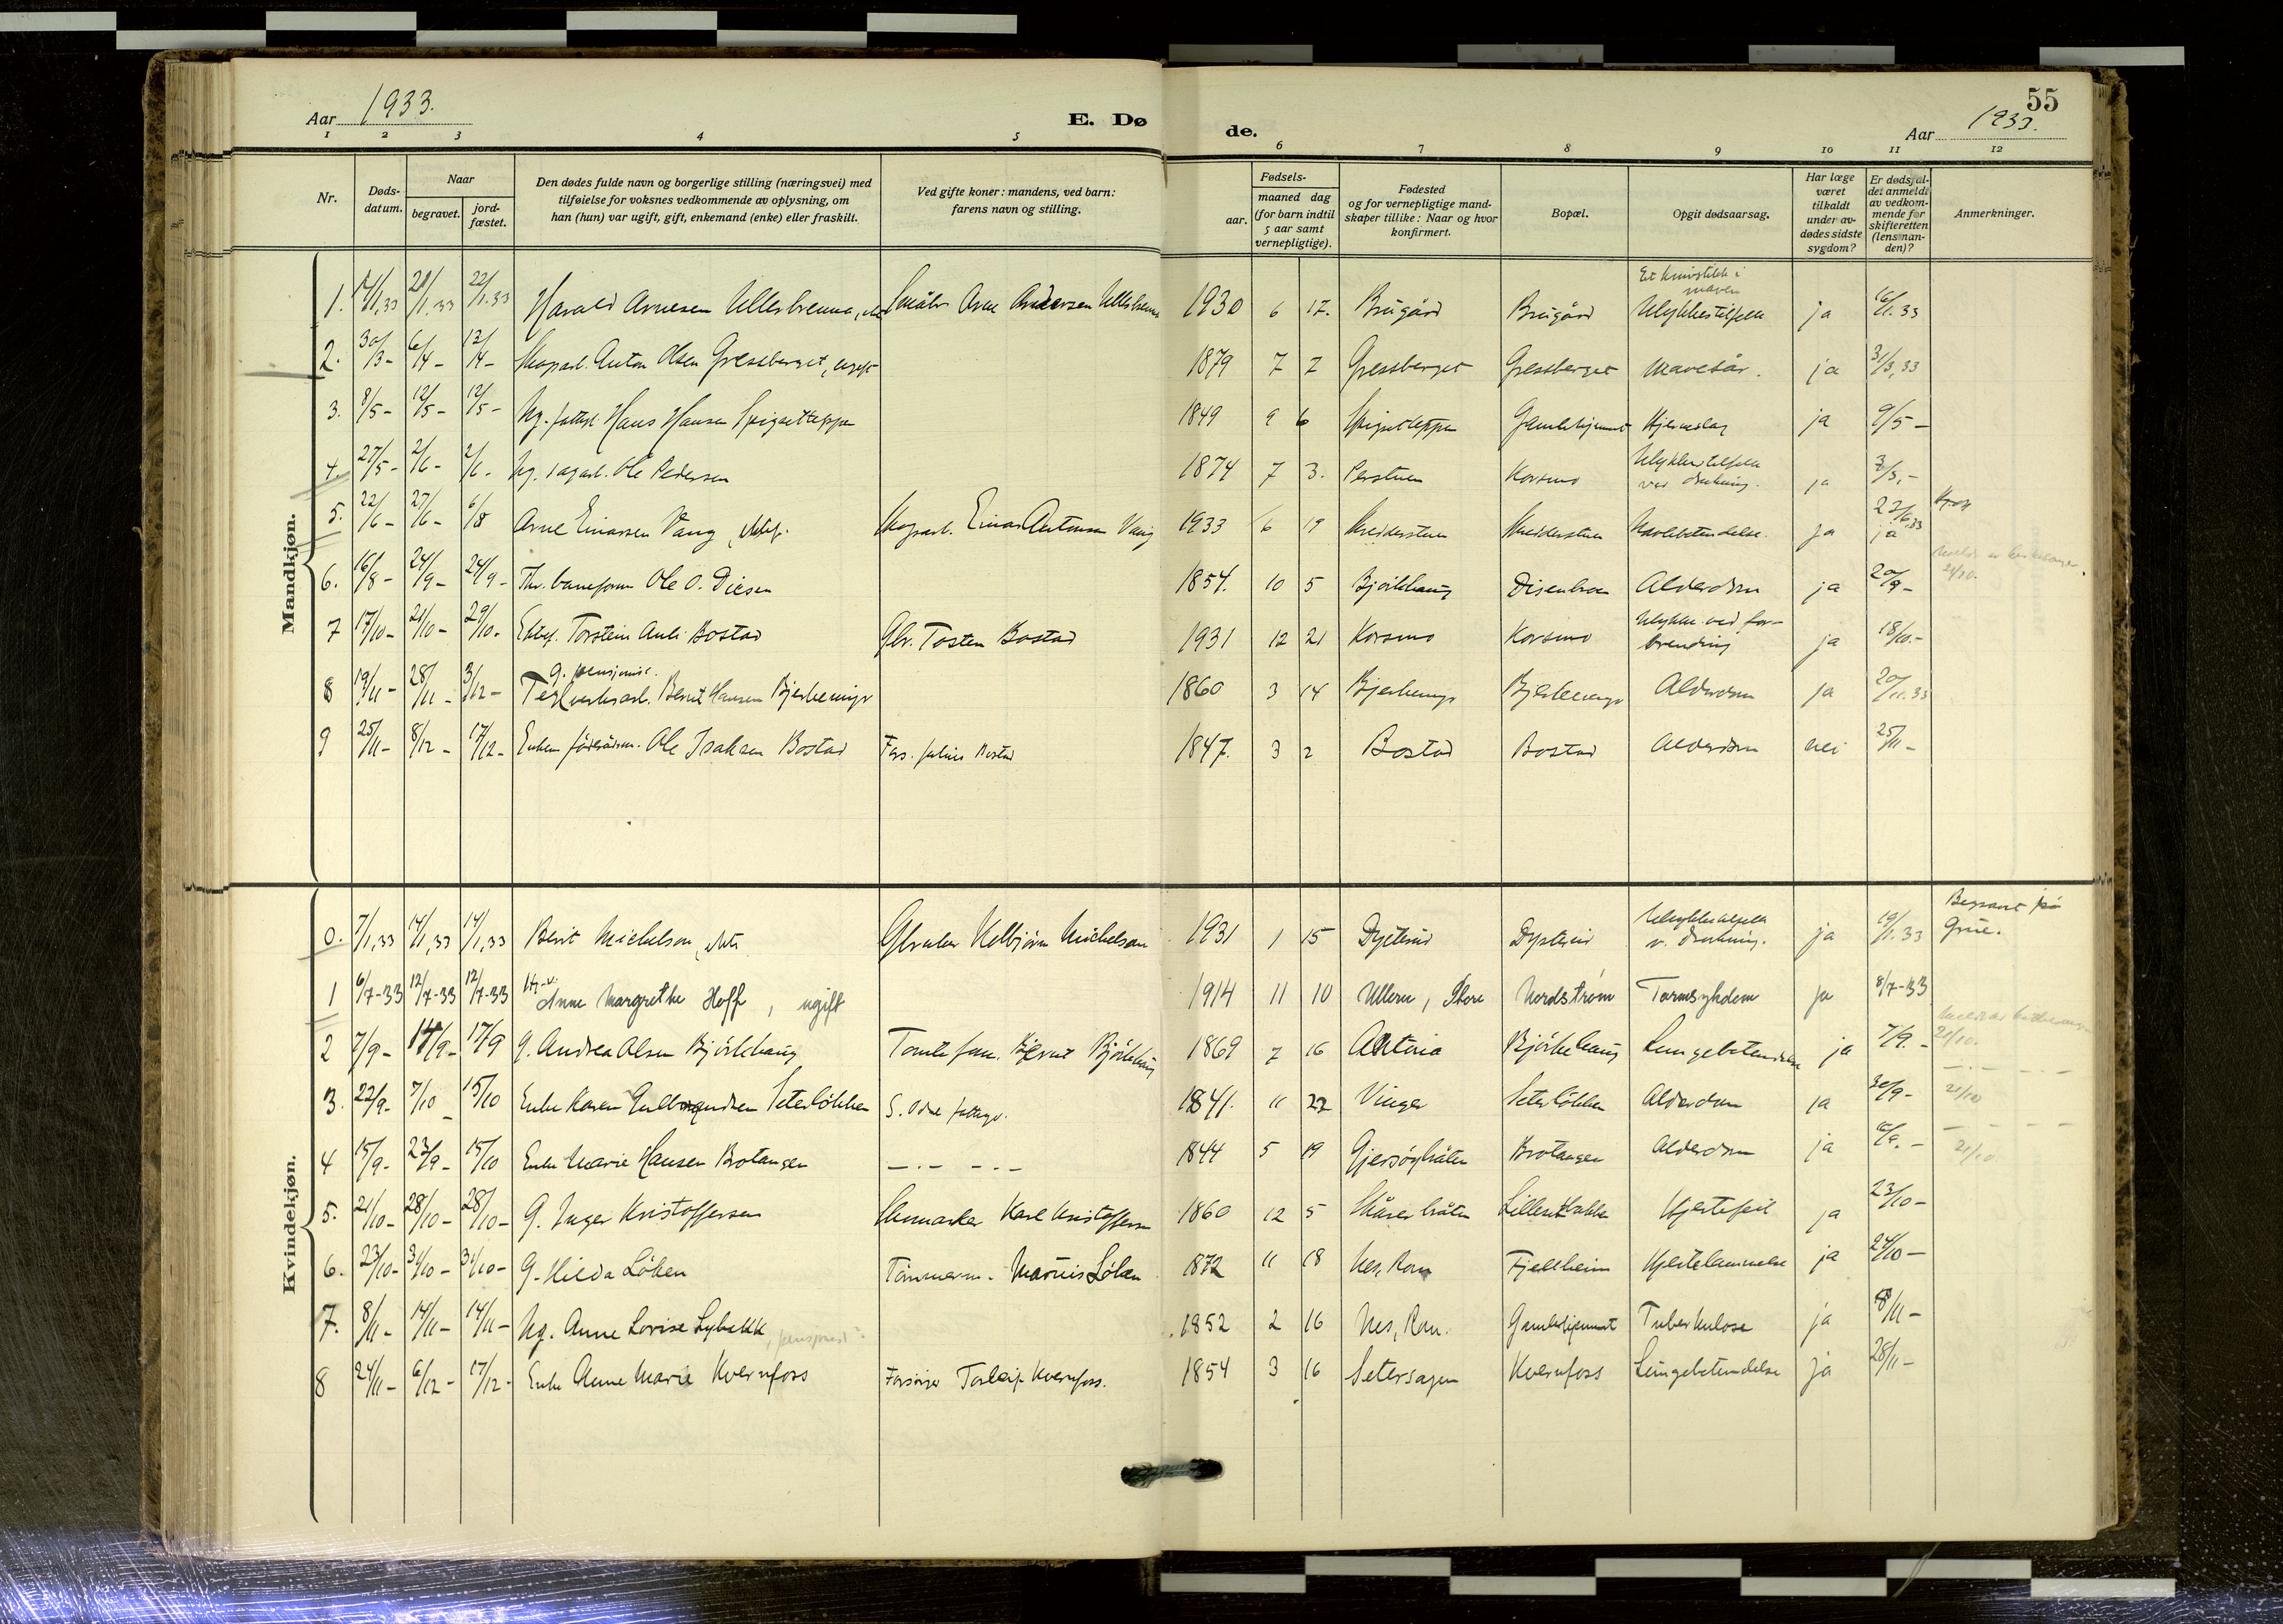 Aar 1933.
E. Dø
de.
55
Aar 1933.
1 2 3 4 5 6 7 8 9 10 11 12
Nr.
Døds-
datum.
Naar
begravet.
jord-
fæstet.
Den dødes fulde navn og borgerlige stilling (næringsvei) med
tilføielse for voksnes vedkommende av oplysning, om
han (hun) var ugift, gift, enkemand (enke) eller fraskilt.
Ved gifte koner: mandens, ved barn:
farens navn og stilling.
Fødsels-
aar.
maaned dag
(for barn indtil
5 aar samt
vernepligtige).
Fødested
og for vernepligtige mand-
skaper tillike: Naar og hvor
konfirmert.
Bopæl.
Opgit dødsaarsag.
Har læge
været
tilkaldt
under av-
dødes sidste
sygdom?
Er dødsfal-
det anmeldt
av vedkom-
mende før
skifteretten
(lensman-
den)?
Anmerkninger.
Mandkjøn.
Et knivstikk i
maven
1. 14/1,33 20/1.33 22/1.33 Harald Arnesen Ullersbrenna, Småbr Arne Andersen 1930 6 17. Brugård Brugård Ulykkestilfelle ja 16/1.33
2. 30/3- 6/4- 12/4- Skogsarb. Anton Olsen Gressberget, ugift 1879 7 7 Gressberget Gressberget Mavesår. ja 31/3,33
3. 8/5- 12/5- 12/5- Ug. Hans Hansen 1849 9 6 Gamlehjemmet Hjerneslag ja 9/5-
4. 27/5- 2/6- 2/6- Ug. sagarb. Ole Pedersen 1874 7 3. Perstuen Korsmo Ulykkestilfelle
ved drukning. ja
5. 22/6- 27/6- 6/8 Arne Einarsen Vang Skogsarb. Einar Antonsen Vang 1933 6 19 Skredderstuen Skredderstuen Navlebetendelse. ja 22/6,33
ja
6. 16/8- 24/9- 24/9- Ole O. Disen 1854. 10 5 Bjørkhaug Alderdom ja 20/9-
7 17/10- 21/10- 29/10- Torstein Bostad Gbr. Tosten Bostad 1931 12 21 Korsmo Korsmo Ulykke ved for-
brenning ja 18/10.-
g. pensjonist.
8 19/11- 28/11- 3/12- Teglverksarb. Bernt Hansen Bjerkeenge 1860 3 14 Bjerkeenge Bjerkeenge Alderdom ja 20/11.33
9 25/11- 8/12- 17/12- Enkem føderådsm. Ole Isaksen Bostad Fors. Julius Bostad 1847. 3 2 Bostad Bostad Alderdom nei 25/11-
Kvindekjøn.
0. 7/1,33 14/1,33 14/1,33 Berit Michelsen Gbruker Kolbjørn Michelsen 1931 1 15 Dysterud Dysterud Ulykkestilfelle
v. drukning. ja 19/1.33 Begravet på
Grue.
1 6/7-33 12/7-33 12/7-33 Anne Margrethe Hoff, ugift 1914 11 10 Ullern, Store Nordstrøm Tarmsykdom ja 8/7-33
2 7/9- 14/9- 17/9 g. Andrea Olsen Bjørkhaug Bernt Bjørkhaug 1869 7 16 Bjørkehaug Lungebetendelse ja 7/9.- 21/10.
3. 22/9- 7/10- 15/10 Enke Karen Gulbrandsen Seterløkken S. Odal fattigv. 1841. 11 22 Vinger Seterløkken Alderdom ja 30/9- 21/10
4 15/9- 23/9- 15/10 Enke Marie Hansen Brotangen —.— —.— 1844 5 19 Brotangen Alderdom ja 21/10
5. 21/10- 28/10- 28/10- G. Inger Kristoffersen Skomaker Karl Kristoffersen 1860 12 5 Skårerbråten Hjertefeil ja 23/10-
6. 23/10- 31/10- 31/10- G. Hilda Løken Tømmerm. Marius Løken 1872 11 18 Nes, Rom Fjellheim Hjertelammelse ja 24/10-
7. 8/11- 14/11- 14/11- Ug. Anne Lovise Lybekk 1852 2 16 Nes, Rom. Gamlehjemmet Tuberkulose ja 8/11-
8 24/11- 6/12- 17/12- Enke Anne Marie Kvernfoss Forsørger Torleif Kvernfoss. 1854 3 16 Setersagen Kvernfoss Lungebetendelse ja 28/11-